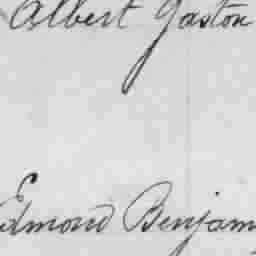 Albert Gaston
Edmond Benjam